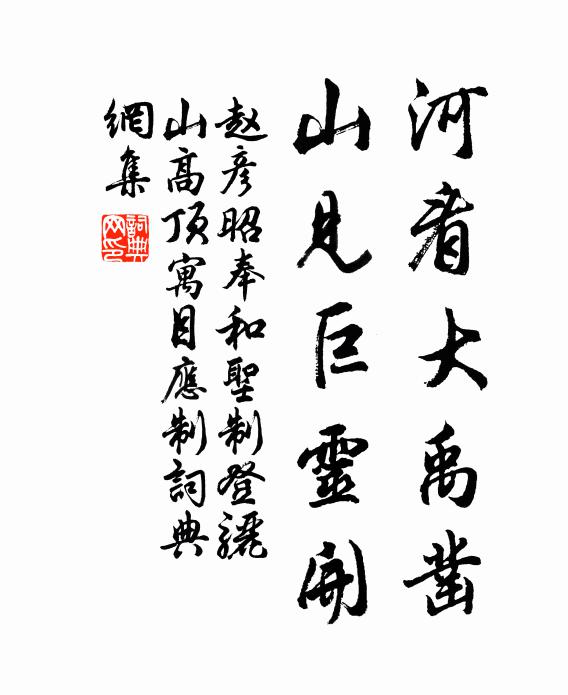 河看大禹凿
山见巨靈開
赵彦昭奉和聖制登驪
山高顶寓目應制詞典
網集
詞典网印